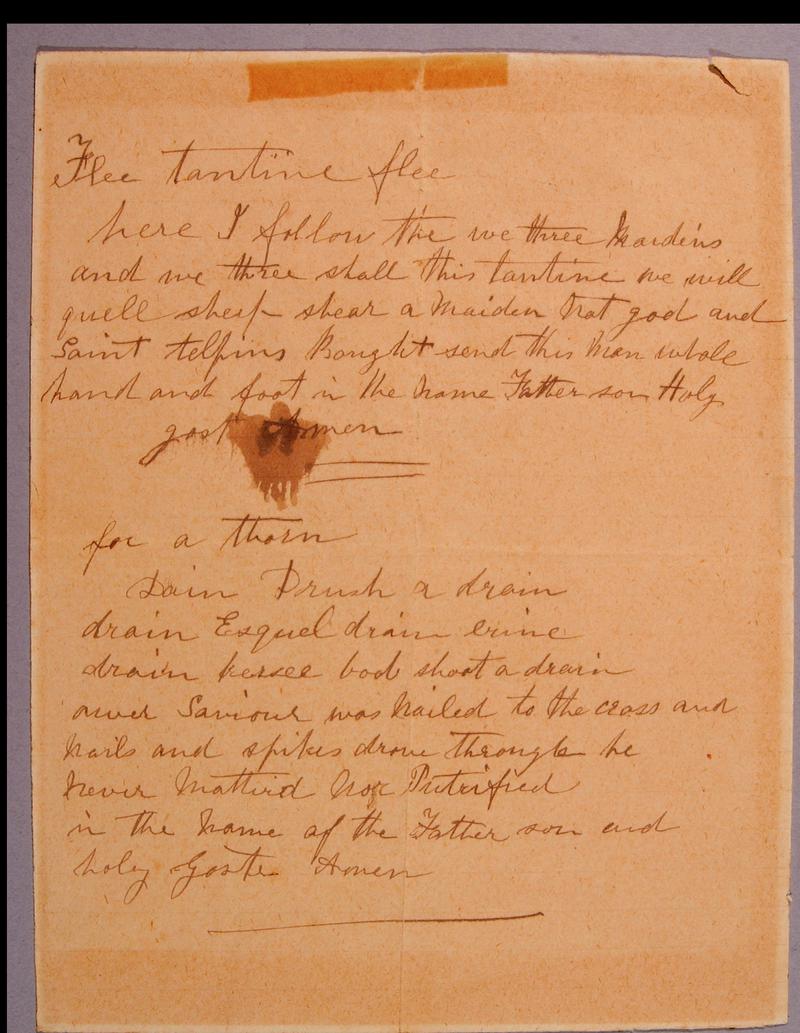 Flee tantine flee
here I follow the we three Maidens
and we three shall this tantine we will
quell sheep shear a Maiden Not god and
Saint telfins Bought send this Man whole
hand and foot in the Name Father son Holy
gost Amen
for a thorn
Drush a drain
drain Esquel drain erine
drain kersee bod shoot a drain
ower Saviour was Nailed to the cross and
Nails and spikes drove through he
Never Mattird Nor Putrified
in the Name of the Father son and
holy Goste Amen